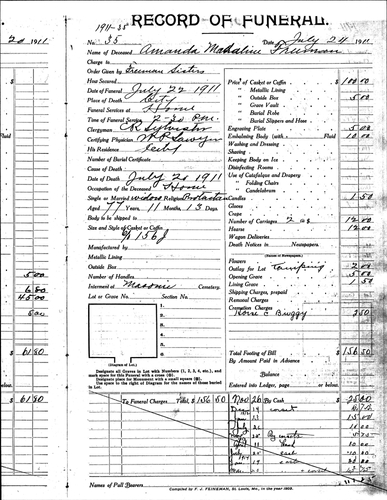 1911-35
RECORD OF FUNERAL.
20 1911
No. 35
Date July 24 1911
Name of Deceased Amanda Mahaline Freeman
Charge to
Order Given by Freeman Sisters
Hearse Secured
Date of Funeral July 22 1911
Place of Death City
Funeral Services at Home
Time of Funeral Service 2-30 P.M.
Clergyman
Certifying Physician W.P. Sawyer
His Residence City
Number of Burial Certificate
Cause of Death
Date of Death July 20 1911
Occupation of the Deceased Home
Single or Married widow Religion Protestant
Aged 77 Years, 11 Months, 13 Days.
Body to be shipped to
Size and Style of Casket or Coffin
Manufactured by
Metallic Lining
Outside Box
Number of Handles
Interment at Masonic Cemetery
Lot or Grave No. Section No.
1.
2.
3.
4.
5.
6.
(Diagram of Lot.)
Designate all Graves in Lot with Numbers (1, 2, 3, 4, etc.), and
mark space for this Funeral with a cross (X).
Designate place for Monument with a small square (□).
Use space to the right of Diagram for the names of those buried
in Lot.
Price of Casket or Coffin $ 100 00
" Metallic Lining
" Outside Box 5 00
" Grave Vault
" Burial Robe
" Burial Slippers and Hose
Engraving Plate 5 00
Embalming Body (with Fluid) 10 00
Washing and Dressing
Shaving
Keeping Body on Ice
Disinfecting Rooms
Use of Catafalque and Drapery
" Folding Chairs
" Candelabrum
Candles 1 50
Gloves
Crape
Number of Carriages 2 12 00
Hearse 12 00
Wagon Deliveries
Death Notices in Newspapers.
(Names of Newspapers)
Flowers
Outlay for Lot 2 00
Opening Grave 5 00
Lining Grave 1 50
Shipping Charges, prepaid
Removal Charges
Horse & Buggy 2 50
Total Footing of Bill $ 156 50
By Amount Paid in Advance
Balance
Entered into Ledger, page or below.
To Funeral Charges Total, $ 156 50
By Cash
Names of Pall Bearers
Compiled by F. J. FEINEMAN, St. Louis, Mo., in the year 1902.
Fluid
5 00
6 80
45 00
5 00
$ 61 80
$ 61 80